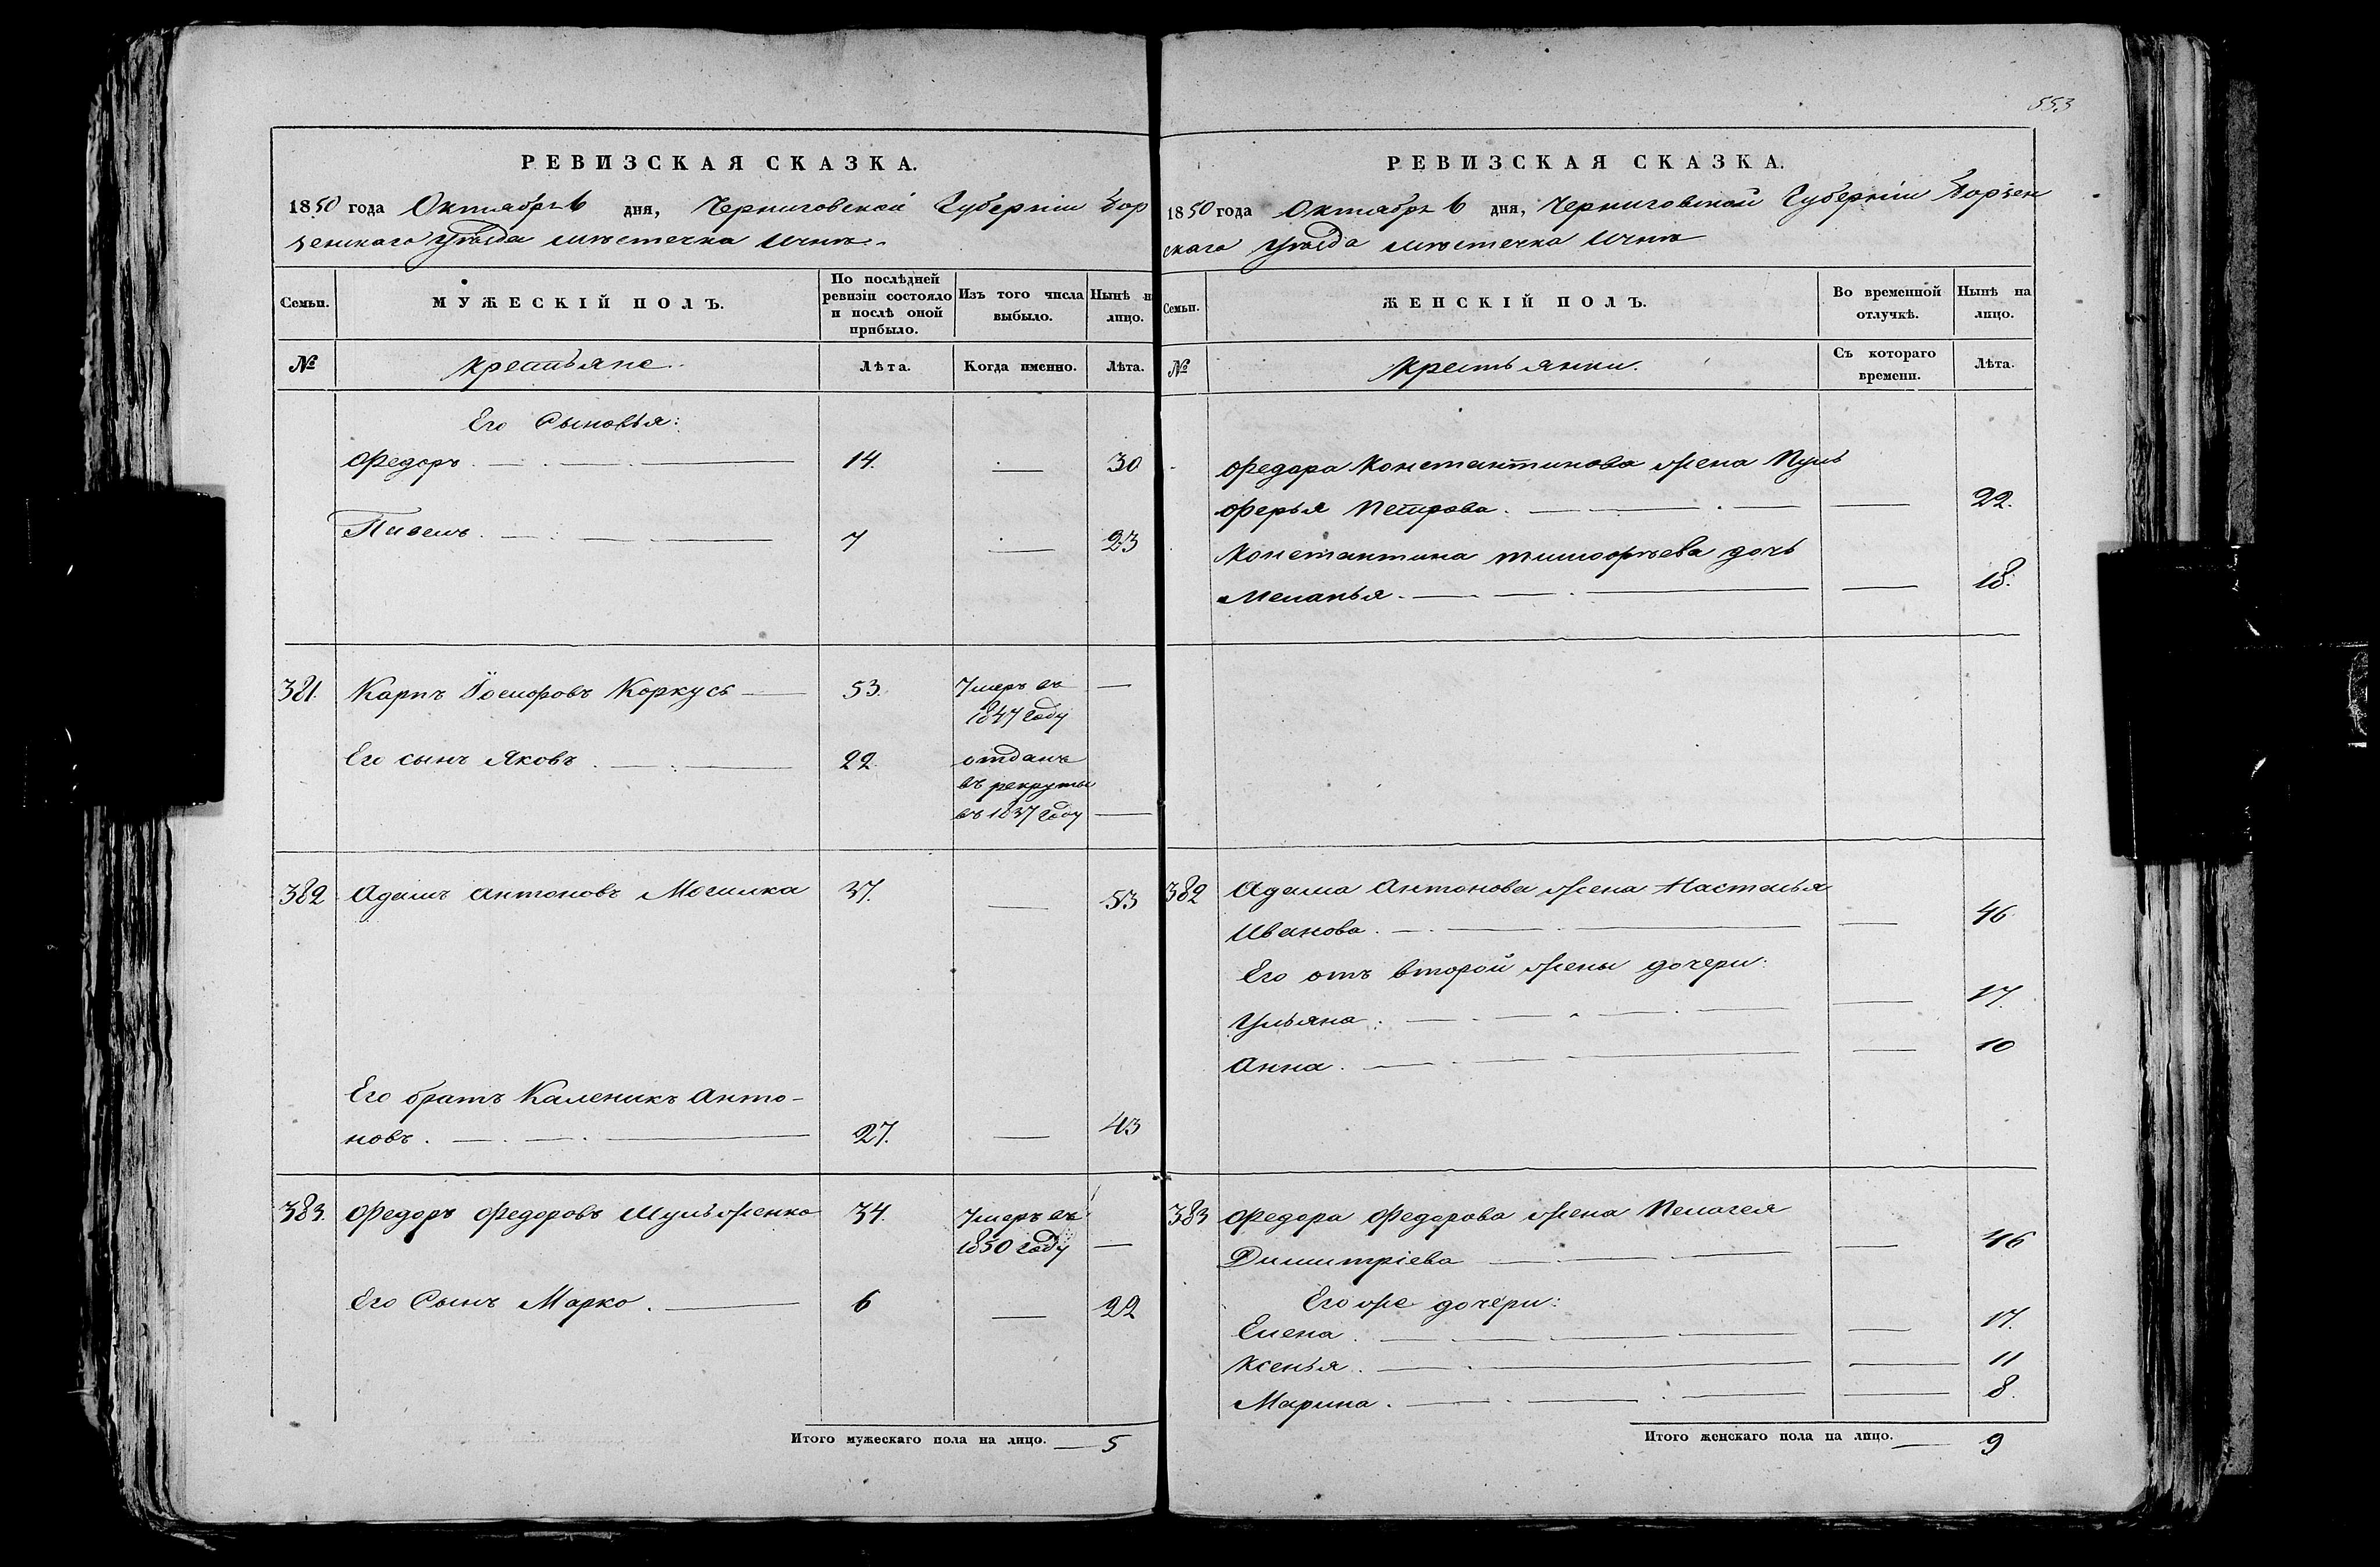 РЕВИЗСКАЯ СКАЗКА.
1850 года Октября 6 дня, Черниговской Губерніи Бор
зенскаго Уѣзда мѣстечка Ични
Семьи.
МУЖЕСКІЙ ПОЛЪ.
По послѣдней
ревизіи состояло
и послѣ оной
прибыло.
Изъ того числа
выбыло.
Нынѣ н
лицо.
№
Крестьяне.
Лѣта.
Когда именно.
Лѣта.
Его Сыновья:
Федоръ 14. — 30
7 — 23
381. Карпъ Коркусь 53. Умеръ въ —
1847 году
Его сынъ Яковъ 22 отданъ
въ рекруты
въ 1837 году —
382 Адамъ Антоновъ Могилка 37. — 53
Его братъ Каленикъ Анто-
новъ. 27. — 43
383. Федоръ Федоровъ 34. Умеръ въ
1850 году —
Его Сынъ Марко. 6 — 22
Итого мужескаго пола на лицо. — 5
553
РЕВИЗСКАЯ СКАЗКА.
1850 года Октября 6 дня, Черниговской Губерніи Борзен
скаго Уѣзда мѣстечка Ични
Семьи.
ЖЕНСКІЙ ПОЛЪ.
Во временной
отлучкѣ.
Нынѣ на
лицо.
№
Крестьянки.
Съ котораго
времени.
Лѣта.
Федора Константинова жена Пуль
ферья Петрова. — 22.
Константина Тимофѣева дочь
Меланья. — 18.
382 Адама Антонова жена Настасья
Иванова. — 46
Его отъ второй жены дочери:
Ульяна. — 17.
Анна. — 10
383 Федора Федорова жена Пелагея
Димитріева — 46
Его же дочери:
Елена. — 17.
Ксенья. — 11
Марина. — 8.
Итого женскаго пола на лицо. — 9